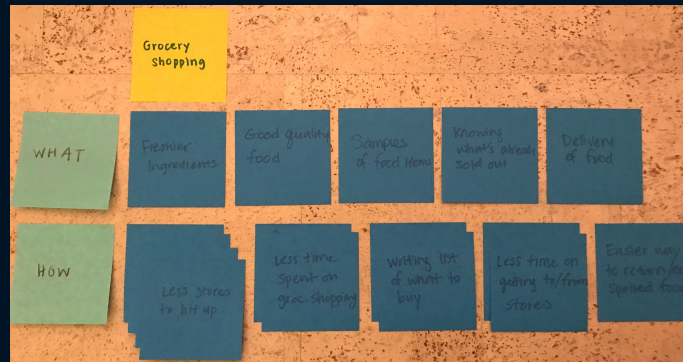 Grocery
shopping
WHAT
Fresher
Ingredients
Good quality
food
Samples
of food items
Knowing
what's already
sold out
Delivery
of food
HOW
Less stores
to hit up
Less time
spent on
groc. shopping
writing list
of what to
buy
Less time on
getting to/from
stores
Easier way
to return/
spoiled